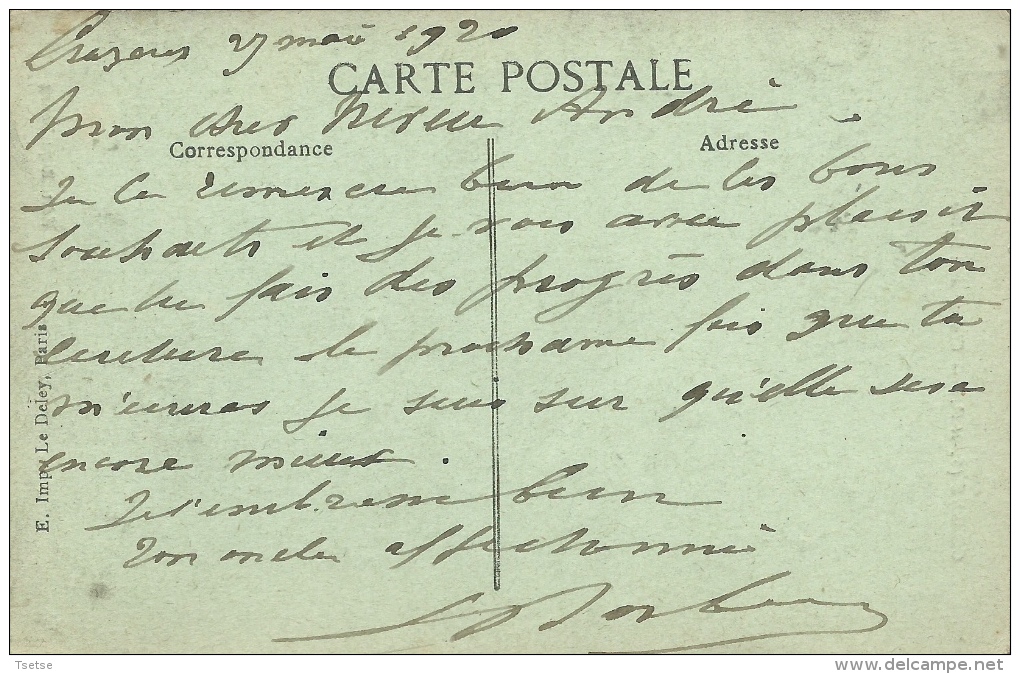 27 mai 1920
CARTE POSTALE
Mon cher neveu André
Correspondance
Adresse
Je te remercie bien de tes bons
souhaits et je vois avec plaisir
que tu fais des progrès dans ton
écriture la prochaine fois que tu
m'écriras je suis sur qu'elle sera
encore mieux.
Je t'embrasse bien
Ton oncle affectionné
E. Imp. Le Deley, Paris
Tsetse
www.delcampe.net